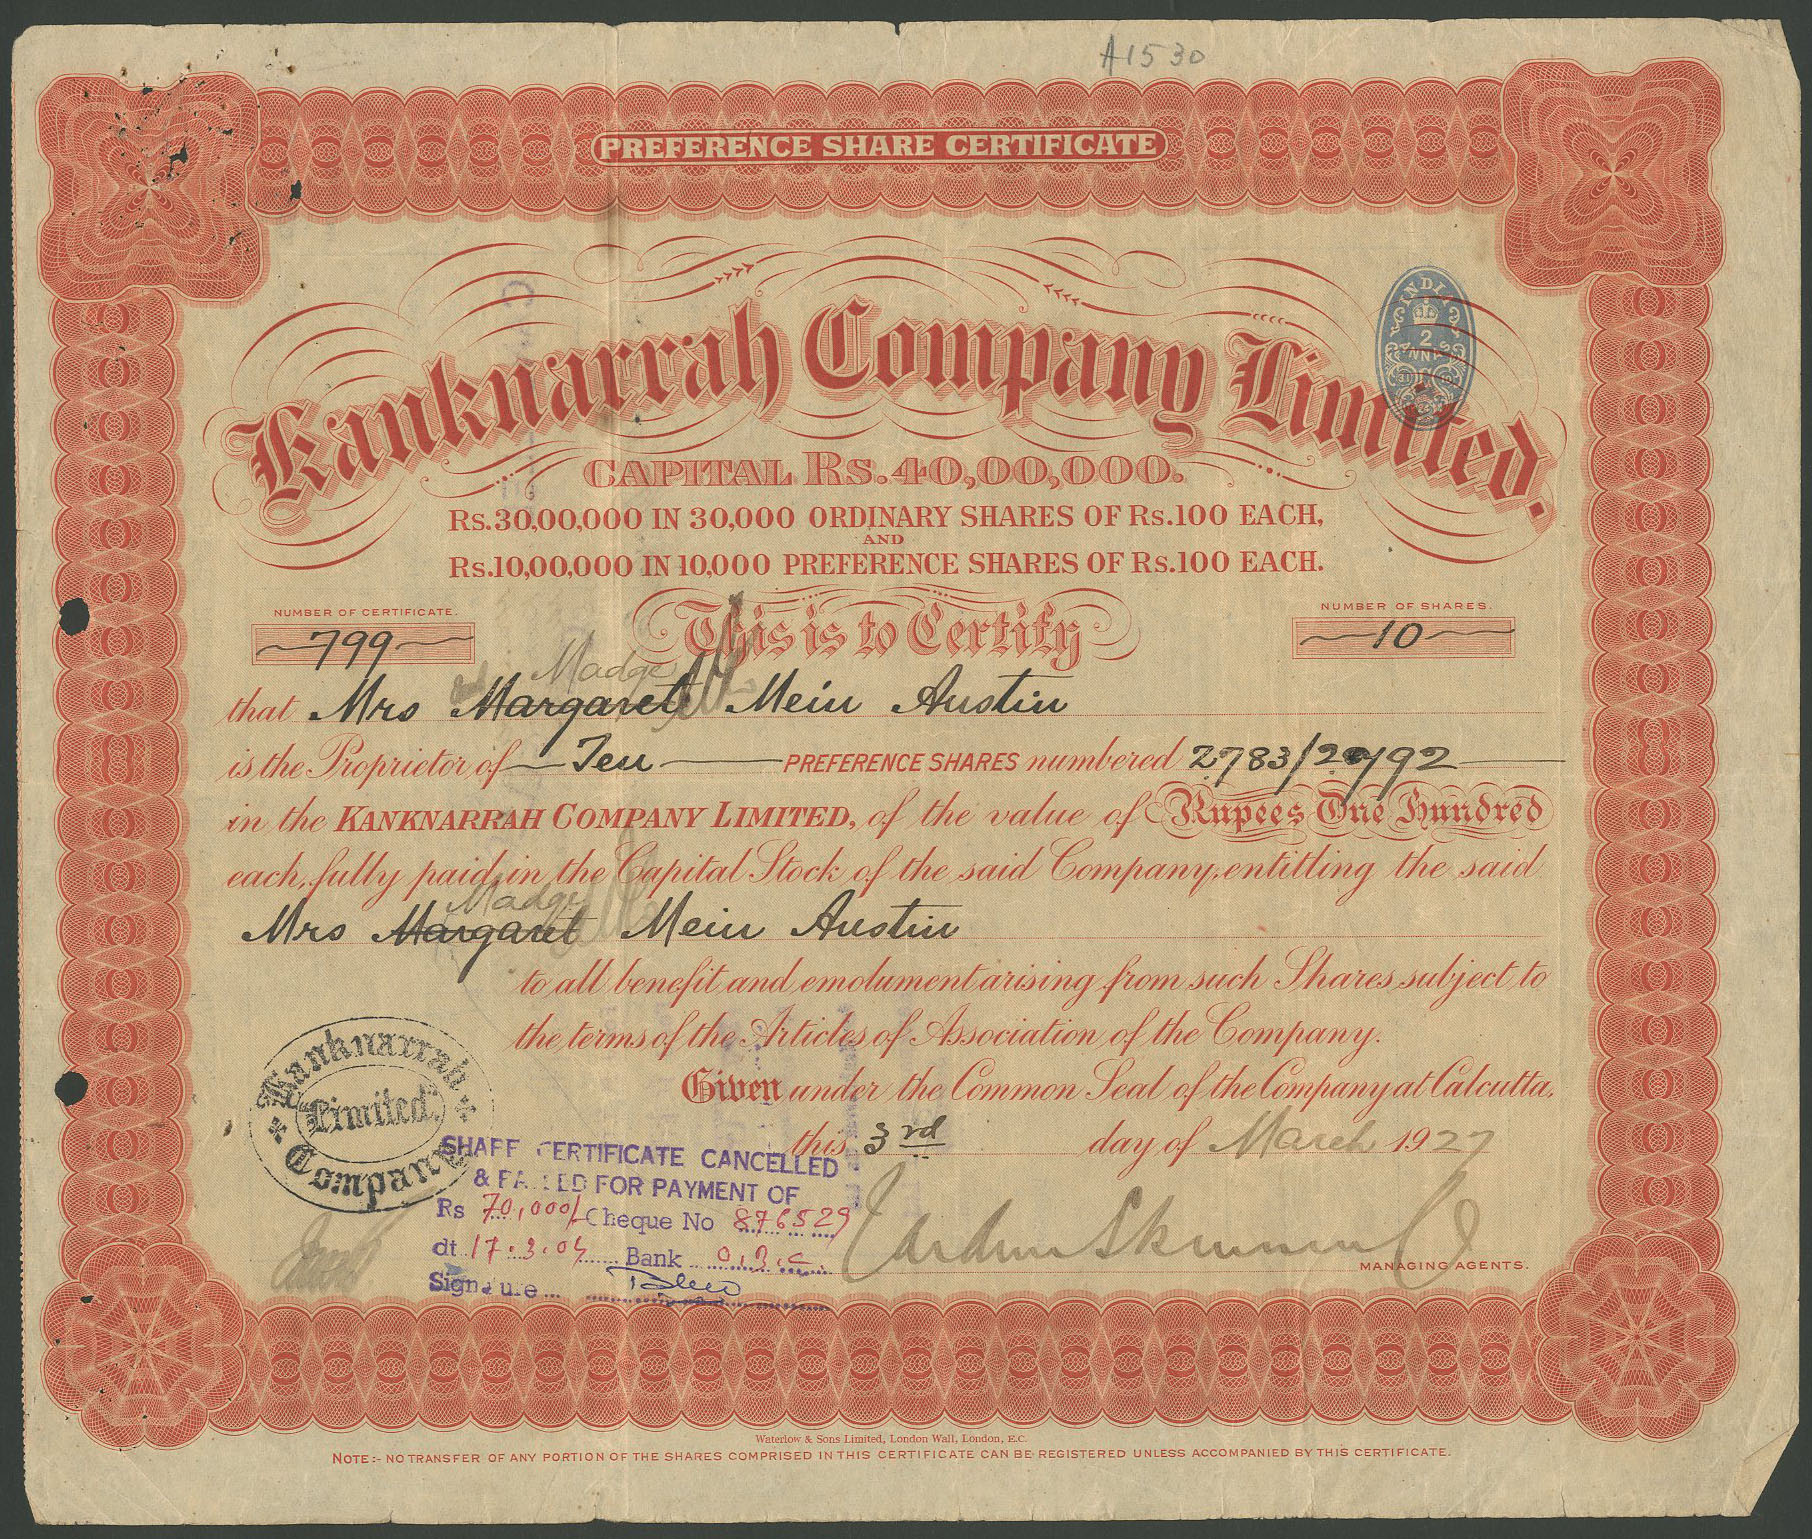 A1530
PREFERENCE SHARE CERTIFICATE
INDIA
2
ANNAS
Kanknarrah Company Limited.
CAPITAL Rs. 40,00,000.
Rs.30,00,000 IN 30,000 ORDINARY SHARES OF Rs.100 EACH,
AND
Rs.10,00,000 IN 10,000 PREFERENCE SHARES OF Rs.100 EACH.
NUMBER OF CERTIFICATE.
799
This is to Certify
NUMBER OF SHARES.
10
Madge
that Mrs Margaret Mein Austin
is the Proprietor of Ten PREFERENCE SHARES numbered 2783/2792
in the KANKNARRAH COMPANY LIMITED, of the value of Rupees One Hundred
each, fully paid, in the Capital Stock of the said Company, entitling the said
Madge
Mrs Margaret Mein Austin
to all benefit and emolument arising from such Shares, subject to
the terms of the Articles of Association of the Company.
Given under the Common Seal of the Company at Calcutta,
this 3rd day of March 1927
Kanknarrah Company Limited.
SHARE CERTIFICATE CANCELLED
& FOR PAYMENT OF
Rs 70,000/- Cheque No 876529
dt 17.3.04 Bank
Signature
Jardine Skinner & Co
MANAGING AGENTS.
Waterlow & Sons Limited, London Wall, London, E.C.
NOTE:- NO TRANSFER OF ANY PORTION OF THE SHARES COMPRISED IN THIS CERTIFICATE CAN BE REGISTERED UNLESS ACCOMPANIED BY THIS CERTIFICATE.